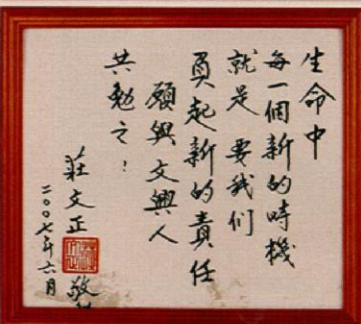 生命中
每一個新的時機
就是 要我们
負起新的責任
願與文興人
共勉之！
莊文正 敬
二〇〇七年六月